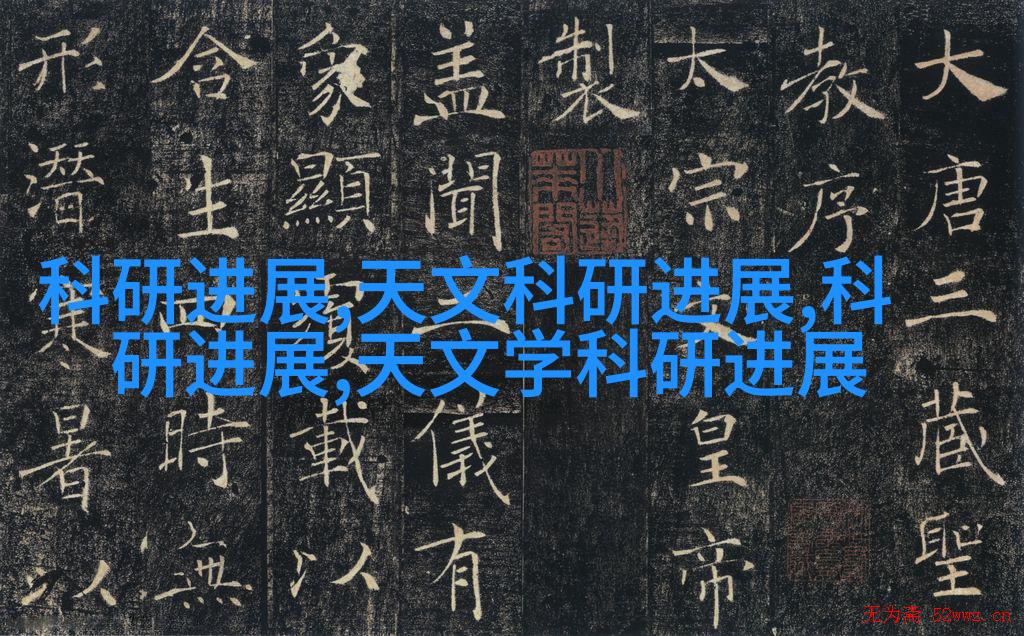 大唐三蔵聖
教序
太宗文皇帝
製
盖聞二儀有
象顯覆載以
含生四時無
形潛寒暑以
科研进展,天文科研进展,科
研进展,天文学科研进展
无为斋 52wwz.cn